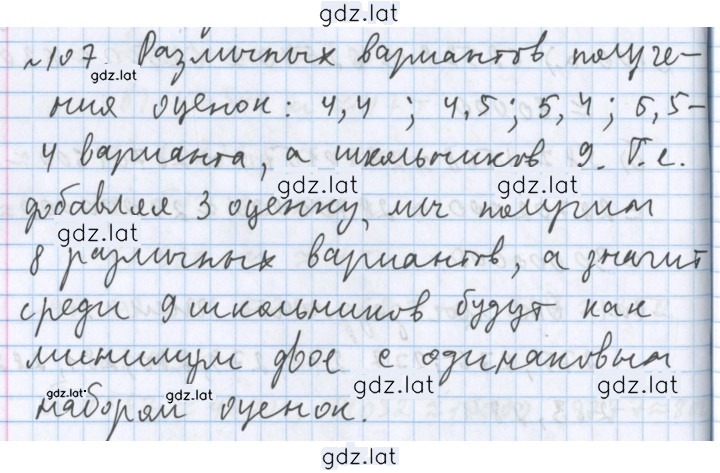 gdz.lat
№107. Различных вариантов получе-
gdz.lat
ния оценок: 4,4 ; 4,5; 5,4; 5,5-
4 варианта, а школьников 9. Т.е.
gdz.lat gdz.lat
добавляя 3 оценку, мы получим
gdz.lat
8 различных вариантов, а значит
среди 9 школьников будут как
минимум двое с одинаковым
gdz.lat gdz.lat gdz.lat
набором оценок.
gdz.lat